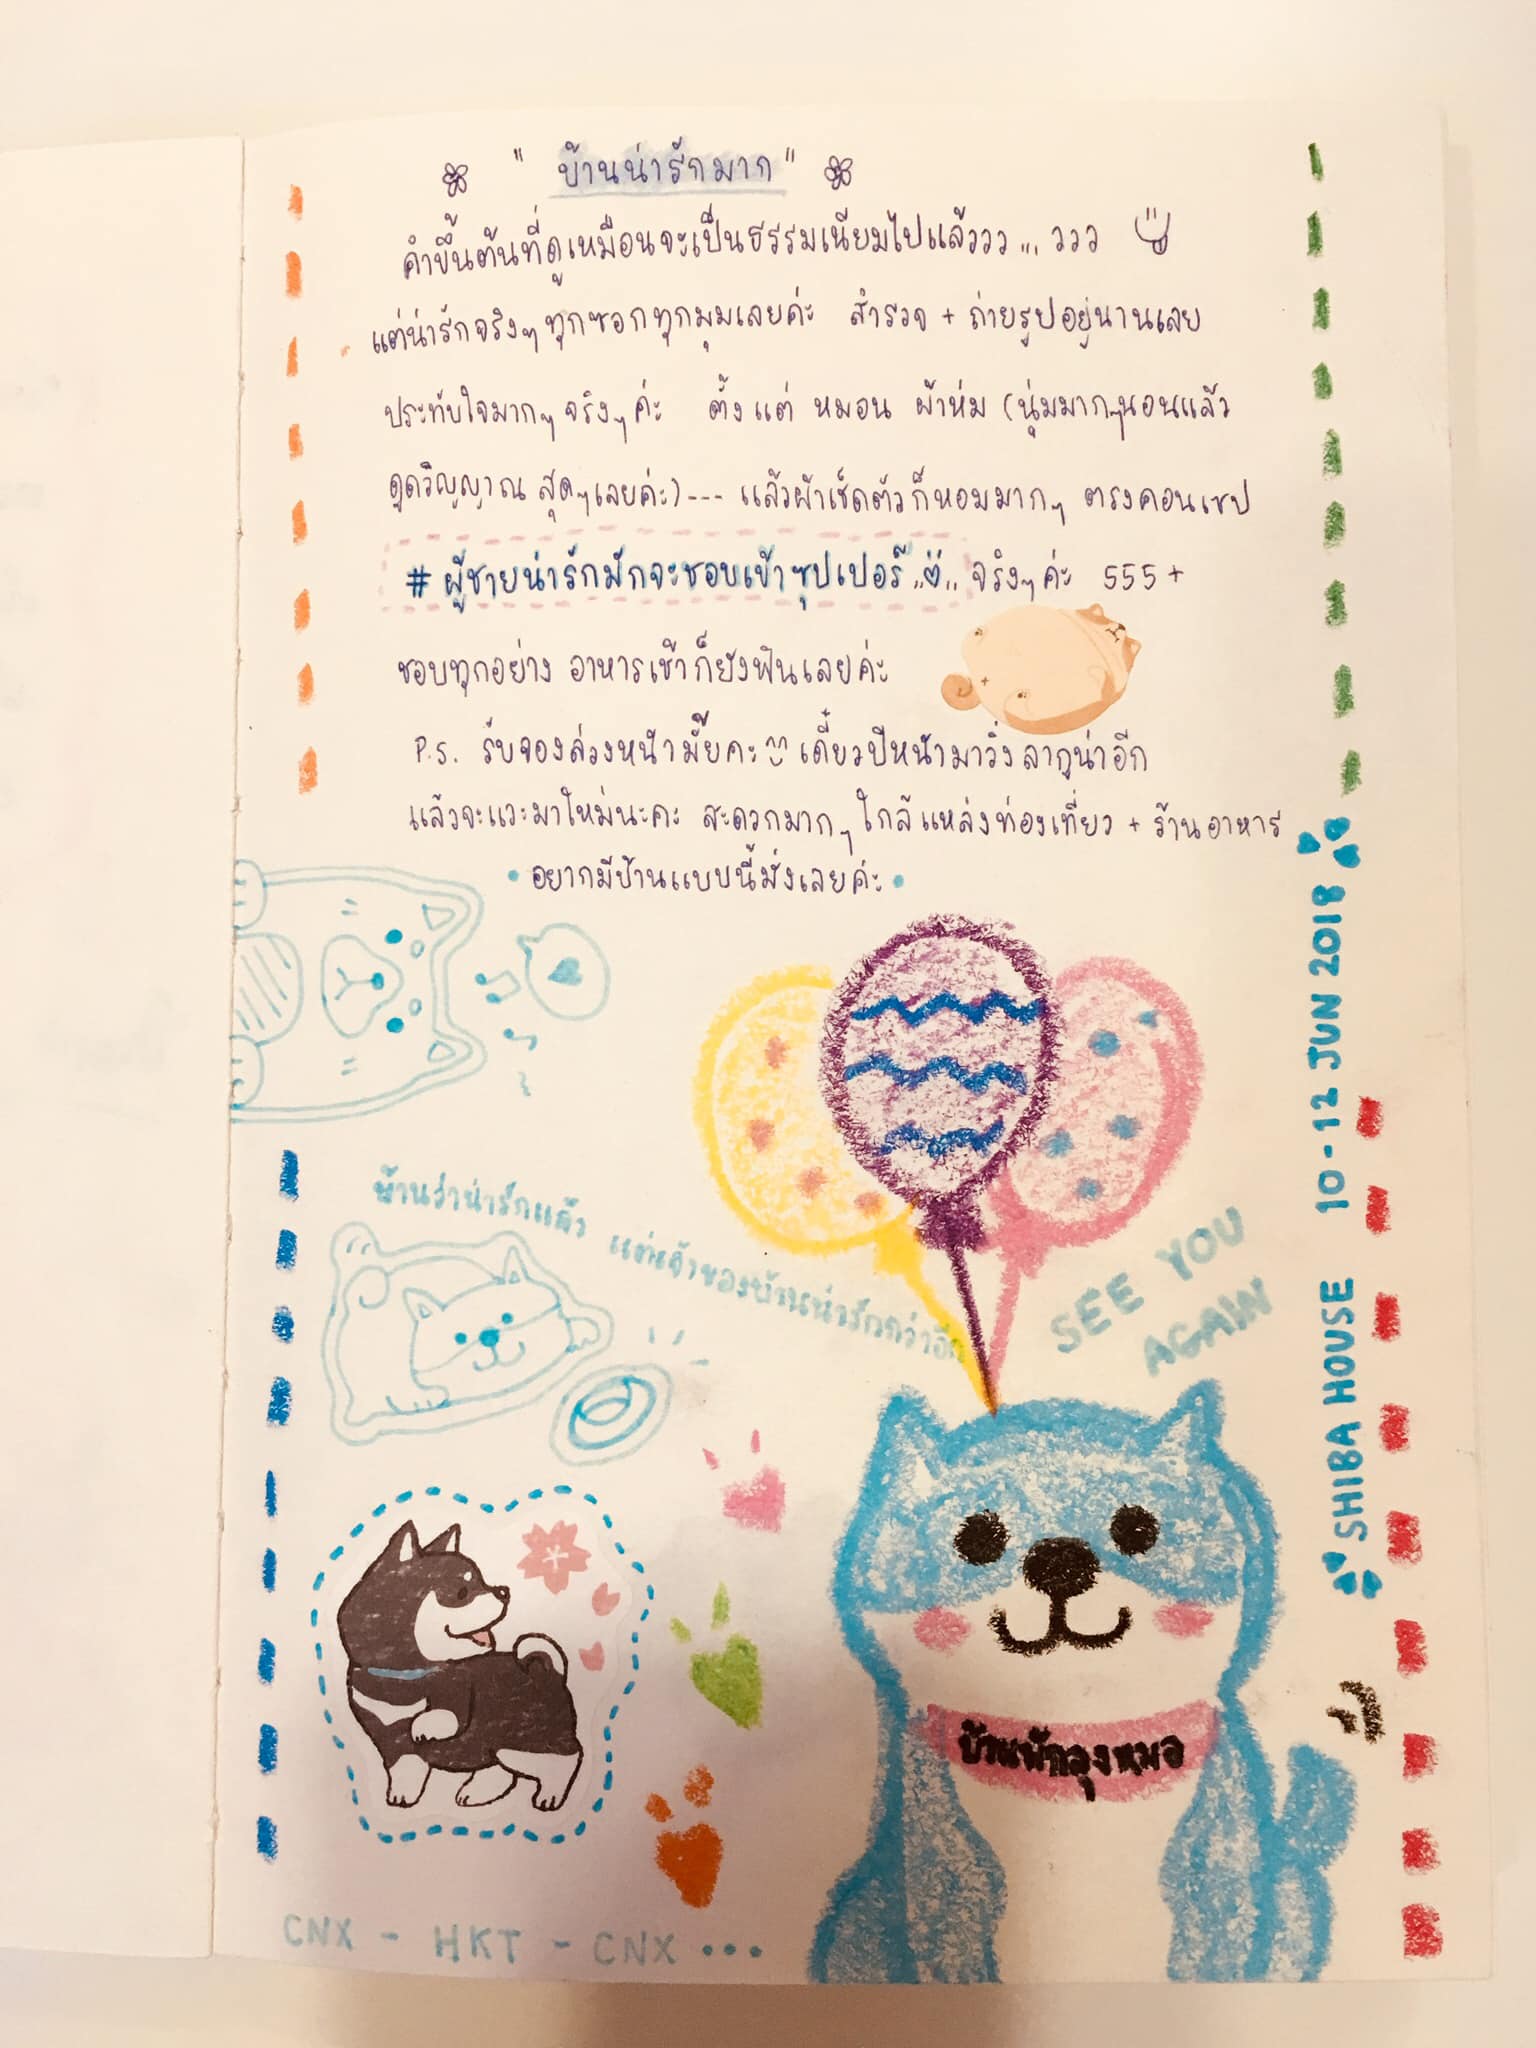 " บ้านน่ารักมาก "
คำขึ้นต้นที่ดูเหมือนจะเป็นธรรมเนียมไปแล้ววว ... ววว
แต่น่ารักจริงๆ ทุกซอกทุกมุมเลยค่ะ สำรวจ + ถ่ายรูปอยู่นานเลย
ประทับใจมากๆ จริงๆ ค่ะ ตั้งแต่ หมอน ผ้าห่ม (นุ่มมากๆ นอนแล้ว
ดูดวิญญาณ สุดๆ เลยค่ะ) --- แล้วผ้าเช็ดตัวก็หอมมากๆ ตรงคอนเซป
# ผู้ชายน่ารักมักจะชอบเข้าซุปเปอร์ .. .. จริงๆ ค่ะ 555+
ชอบทุกอย่าง อาหารเช้าก็ยังฟินเลยค่ะ
P.S. รับจองล่วงหน้ามั๊ยคะ เดี๋ยวปีหน้ามาวิ่งลากูน่าอีก
แล้วจะแวะมาใหม่นะคะ สะดวกมากๆ ใกล้แหล่งท่องเที่ยว + ร้านอาหาร
• อยากมีบ้านแบบนี้มั่งเลยค่ะ •
บ้านว่าน่ารักแล้ว แต่เจ้าของบ้านน่ารักกว่าอีก
SEE YOU
AGAIN
SHIBA HOUSE 10-12 JUN 2018
บ้านพักลุงหมอ
CNX - HKT - CNX •••